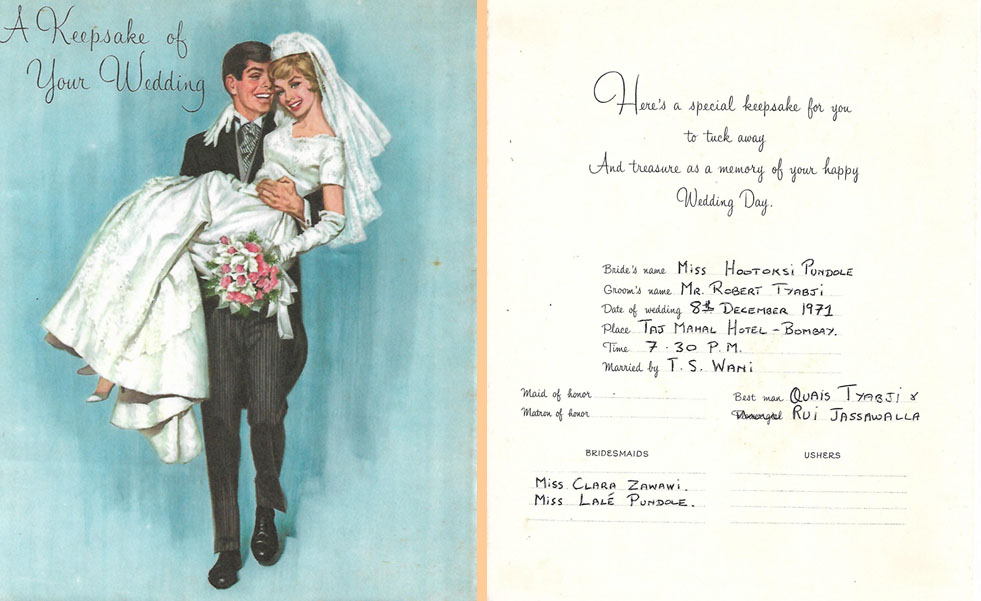 A Keepsake of
Your Wedding
Here's a special keepsake for you
to tuck away
And treasure as a memory of your happy
Wedding Day.
Bride's name Miss Hootoksi Pundole
Groom's name Mr. Robert Tyabji
Date of wedding 8th December 1971
Place Taj Mahal Hotel - Bombay.
Time 7.30 P.M.
Married by T. S. Wani
Maid of honor
Matron of honor
Best man Quais Tyabji &
Rui Jassawalla
BRIDESMAIDS
Miss Clara Zawawi.
Miss Lalé Pundole.
USHERS